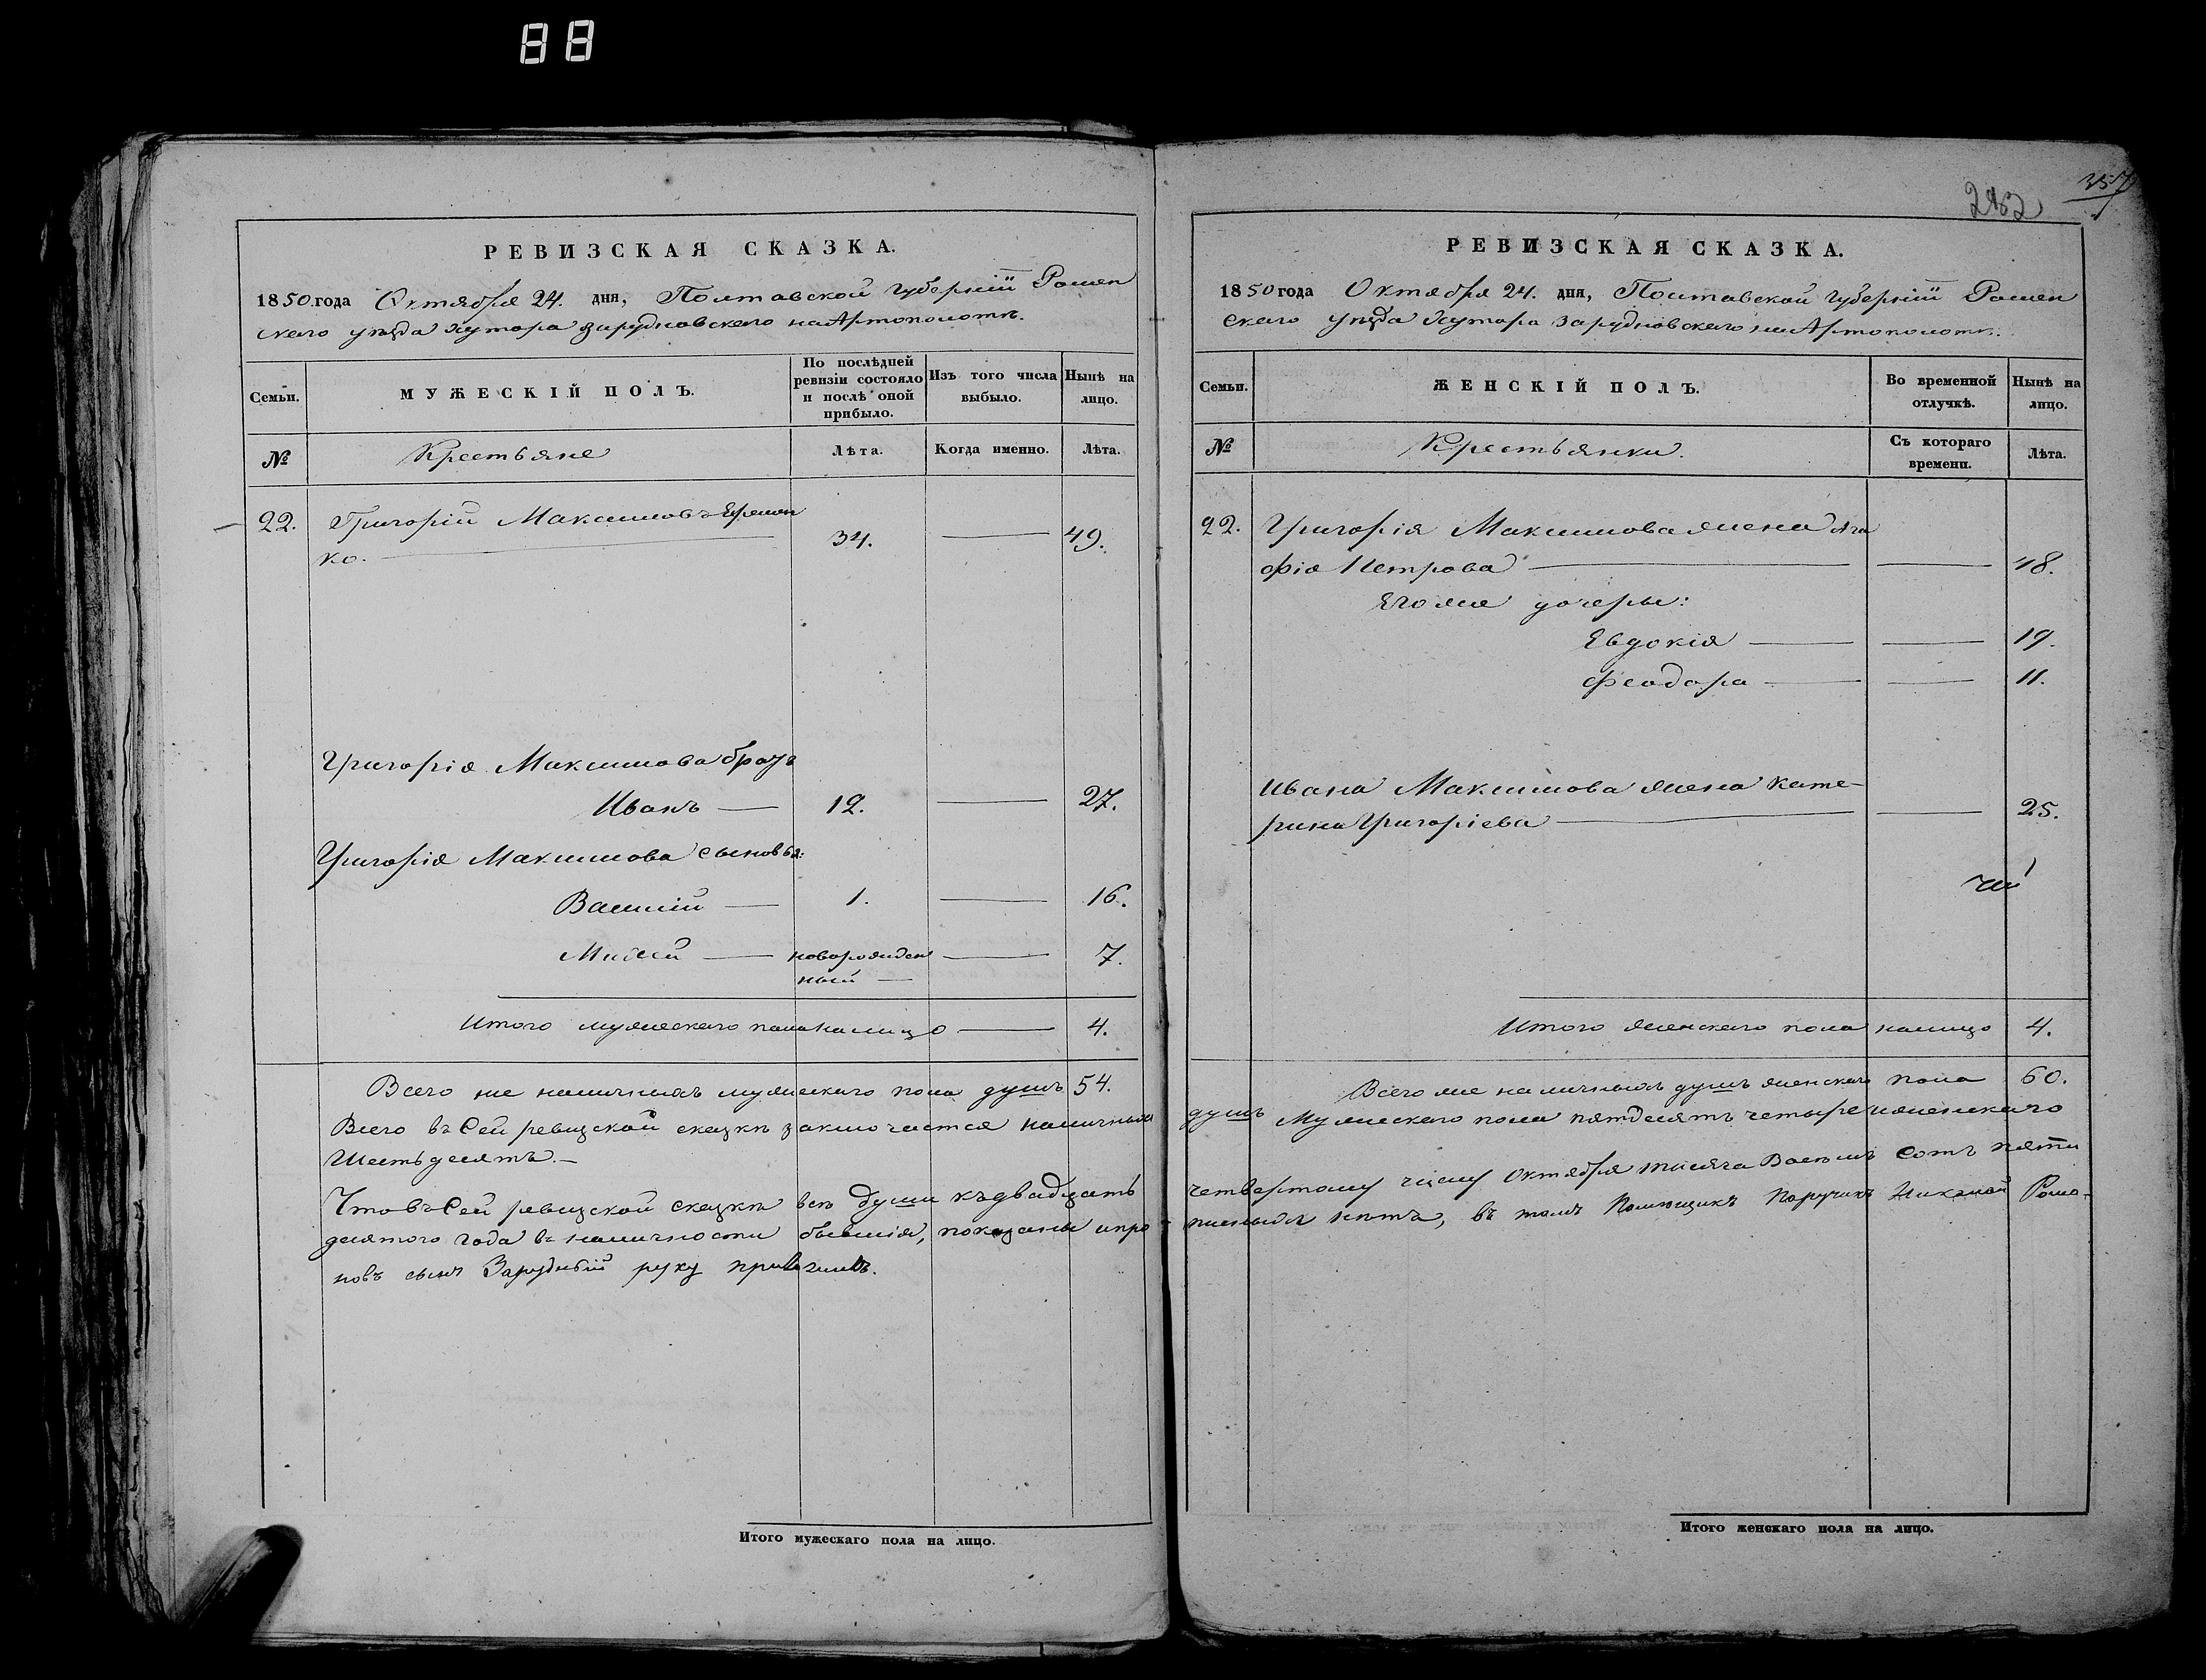 88
РЕВИЗСКАЯ СКАЗКА.
1850 года Октября 24. дня, Полтавской Губерніи Ромен
скаго уѣзда хутора Зарудновскаго на Артополотѣ.
Семьи.
МУЖЕСКІЙ ПОЛЪ.
По послѣдней ревизіи состояло и послѣ оной прибыло.
Изъ того числа выбыло.
Нынѣ на лицо.
№
Крестьяне
Лѣта.
Когда именно.
Лѣта.
22. Григорій Максимовъ Ярмон
ко. — 34. — 49.
Григорія Максимова братъ
Иванъ — 12. — 27.
Григорія Максимова сыновья:
Василій — 1. — 16.
новорожден
ный — 7.
Итого мужескаго пола налицо — 4.
Всего же наличныхъ мужескаго пола душъ 54.
Всего въ Сей ревизской сказкѣ заключается наличныхъ
Шестьдесятъ.—
Что въ Сей ревизской сказкѣ всѣ души къ двадцать
десятого года въ наличности бывшія, показаны и про
новъ сынъ Зарудный руку приложилъ.
Итого мужескаго пола на лицо.
357
РЕВИЗСКАЯ СКАЗКА.
1850 года Октября 24. дня, Полтавской Губерніи Ромен
скаго уѣзда Хутора Зарудновскаго на Артополотѣ.
Семьи.
ЖЕНСКІЙ ПОЛЪ.
Во временной отлучкѣ.
Нынѣ на лицо.
№
Крестьянки.
Съ котораго времени.
Лѣта.
22. Григорія Максимова жена Ага
фія Петрова — — 48.
Его же дочеры:
Евдокія — — 19.
Феодора — — 11.
Ивана Максимова жена Кате-
рина Григоріева — — 25.
Итого женскаго пола налицо 4.
Всего же наличныхъ душъ женскаго пола 60.
душъ Мужескаго пола пятдесятъ четыре и женскаго
четвертому числу Октября тысяча Восемь Сотъ пяти
писныхъ нѣтъ, въ томъ Помѣщикъ Поручикъ Никаной Рома-
Итого женскаго пола на лицо.